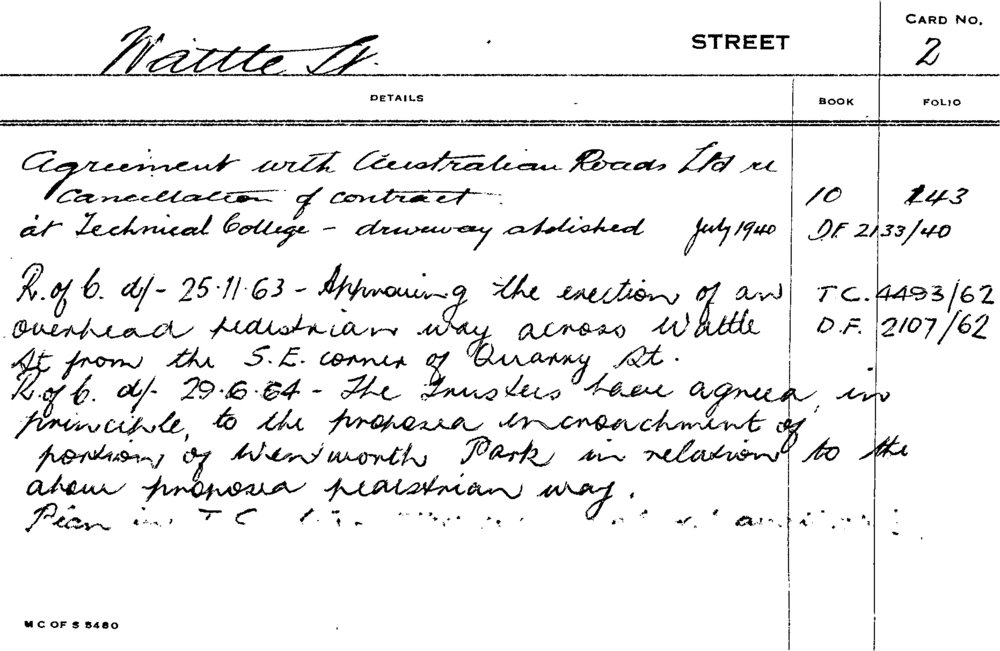 CARD NO.
Wattle St. STREET 2
DETAILS BOOK FOLIO
Agreement with Australian Roads Ltd re
Cancellation of contract 10 143
at Technical College - driveway abolished July 1940 D.F. 2133/40
R. of C. d/- 25.11.63 - Approving the erection of an T.C. 4493/62
overhead pedestrian way across Wattle D.F. 2107/62
St from the S.E. corner of Quarry St.
R. of C. d/- 29.6.64 - The Trustees have agreed, in
principle, to the proposed incroachment of
portion, of Wentworth Park in relation to the
above proposed pedestrian way.
Plan in T C
M C OF S 5480